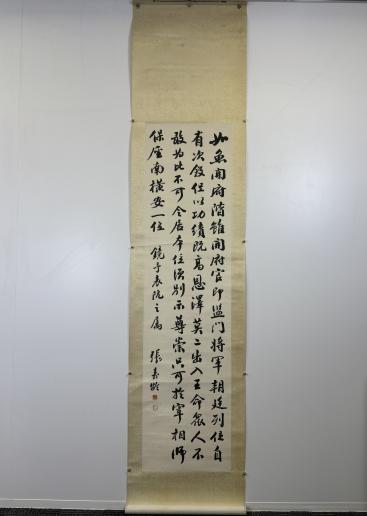 如魚開府階雖開府官即監门将軍朝廷列位自
有次叙但以功績既高恩澤莫二出入王命衆人不
敢为比不可令居本位須别示尊崇只可於宰相师
保座南横安一位
鏡予表阮之属
張嘉